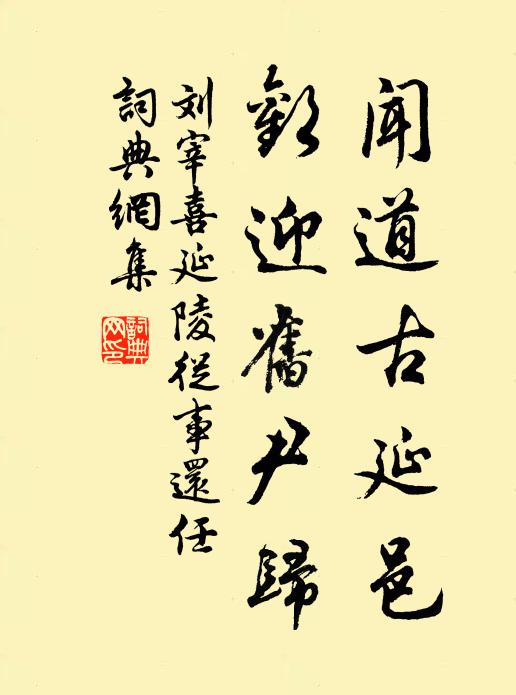 闻道古延邑
歡迎舊尹歸
刘宰喜延陵從事還任
詞典網集
詞典网印